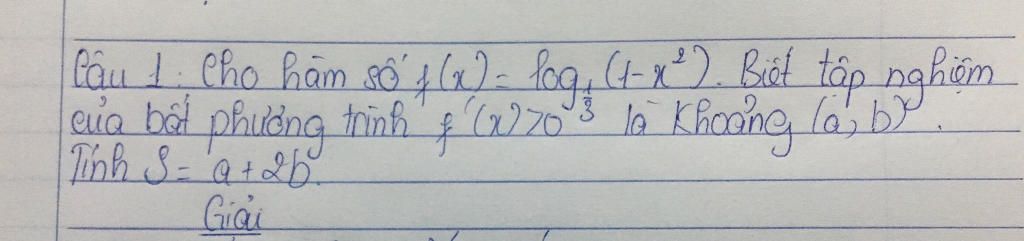 Câu 1: Cho hàm số f(x) = log_{1/3} (1-x²). Biết tập nghiệm
của bất phương trình f'(x)>0 là khoảng (a, b).
Tính S = a+2b.
Giải